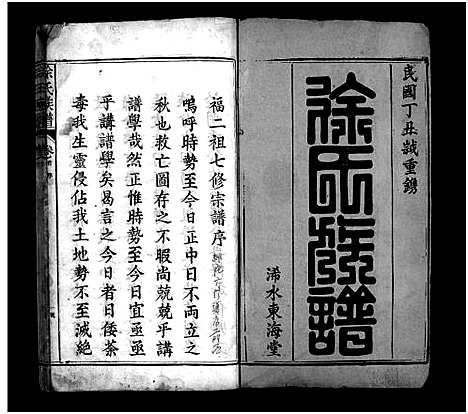 民國丁丑歲重鐫
徐氏族譜
浠水東海堂
福二祖七修宗譜序
嗚呼時勢至今日正中日不兩立之
秋也救亡圖存之不暇尚兢兢乎講
譜學哉然正惟時勢至今日宜亟亟
乎講譜學矣曷言之今日者日倭荼
毒我生靈侵佔我土地勢不至滅絕
徐氏族譜